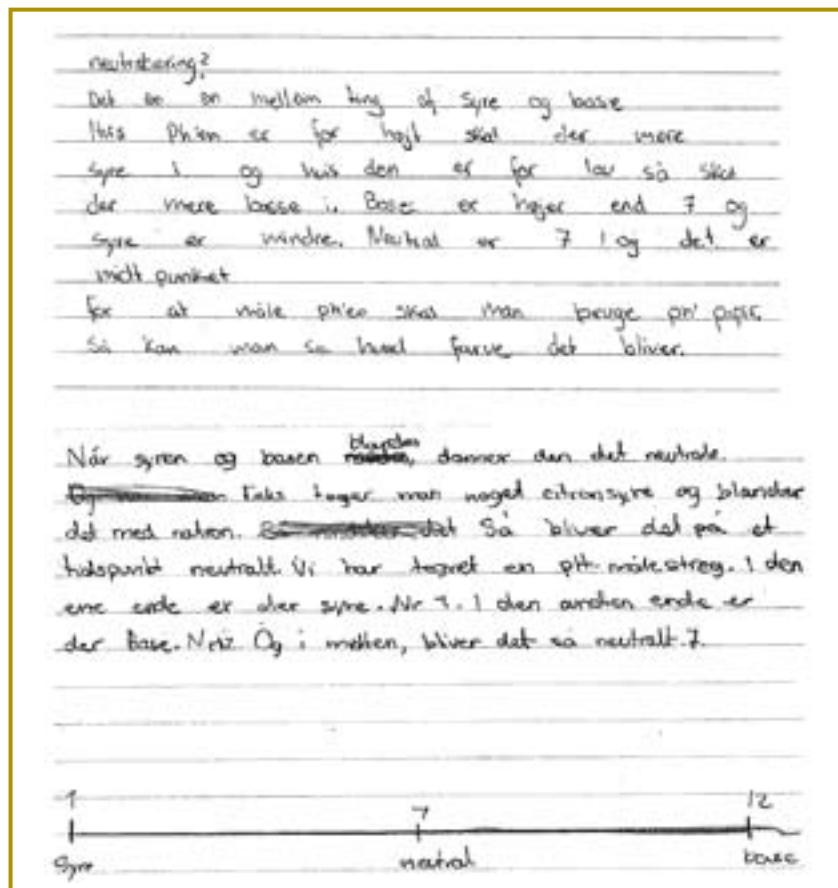 neutralisering?
Det er en mellem ting af syre og base
Hvis Ph'en er for højt skal der mere
syre i og hvis den er for lav så skal
der mere basse i. Base er højer end 7 og
syre er mindre. Neutral er 7 og det er
midt punket
for at måle ph'en skal man bruge ph' papir.
Så kan man se hvad farve det bliver.
Når syren og basen blandes, danner den det neutrale.
F.eks tager man noget citronsyre og blander
det med natron. Så bliver det på et
tidspunkt neutralt. Vi har tegnet en pH-målestreg. I den
ene ende er der syre. Nr 1. I den anden ende er
der Base. Nr 12 Og i mellen, bliver det så neutralt. 7.
1 7 12
Syre neutral base